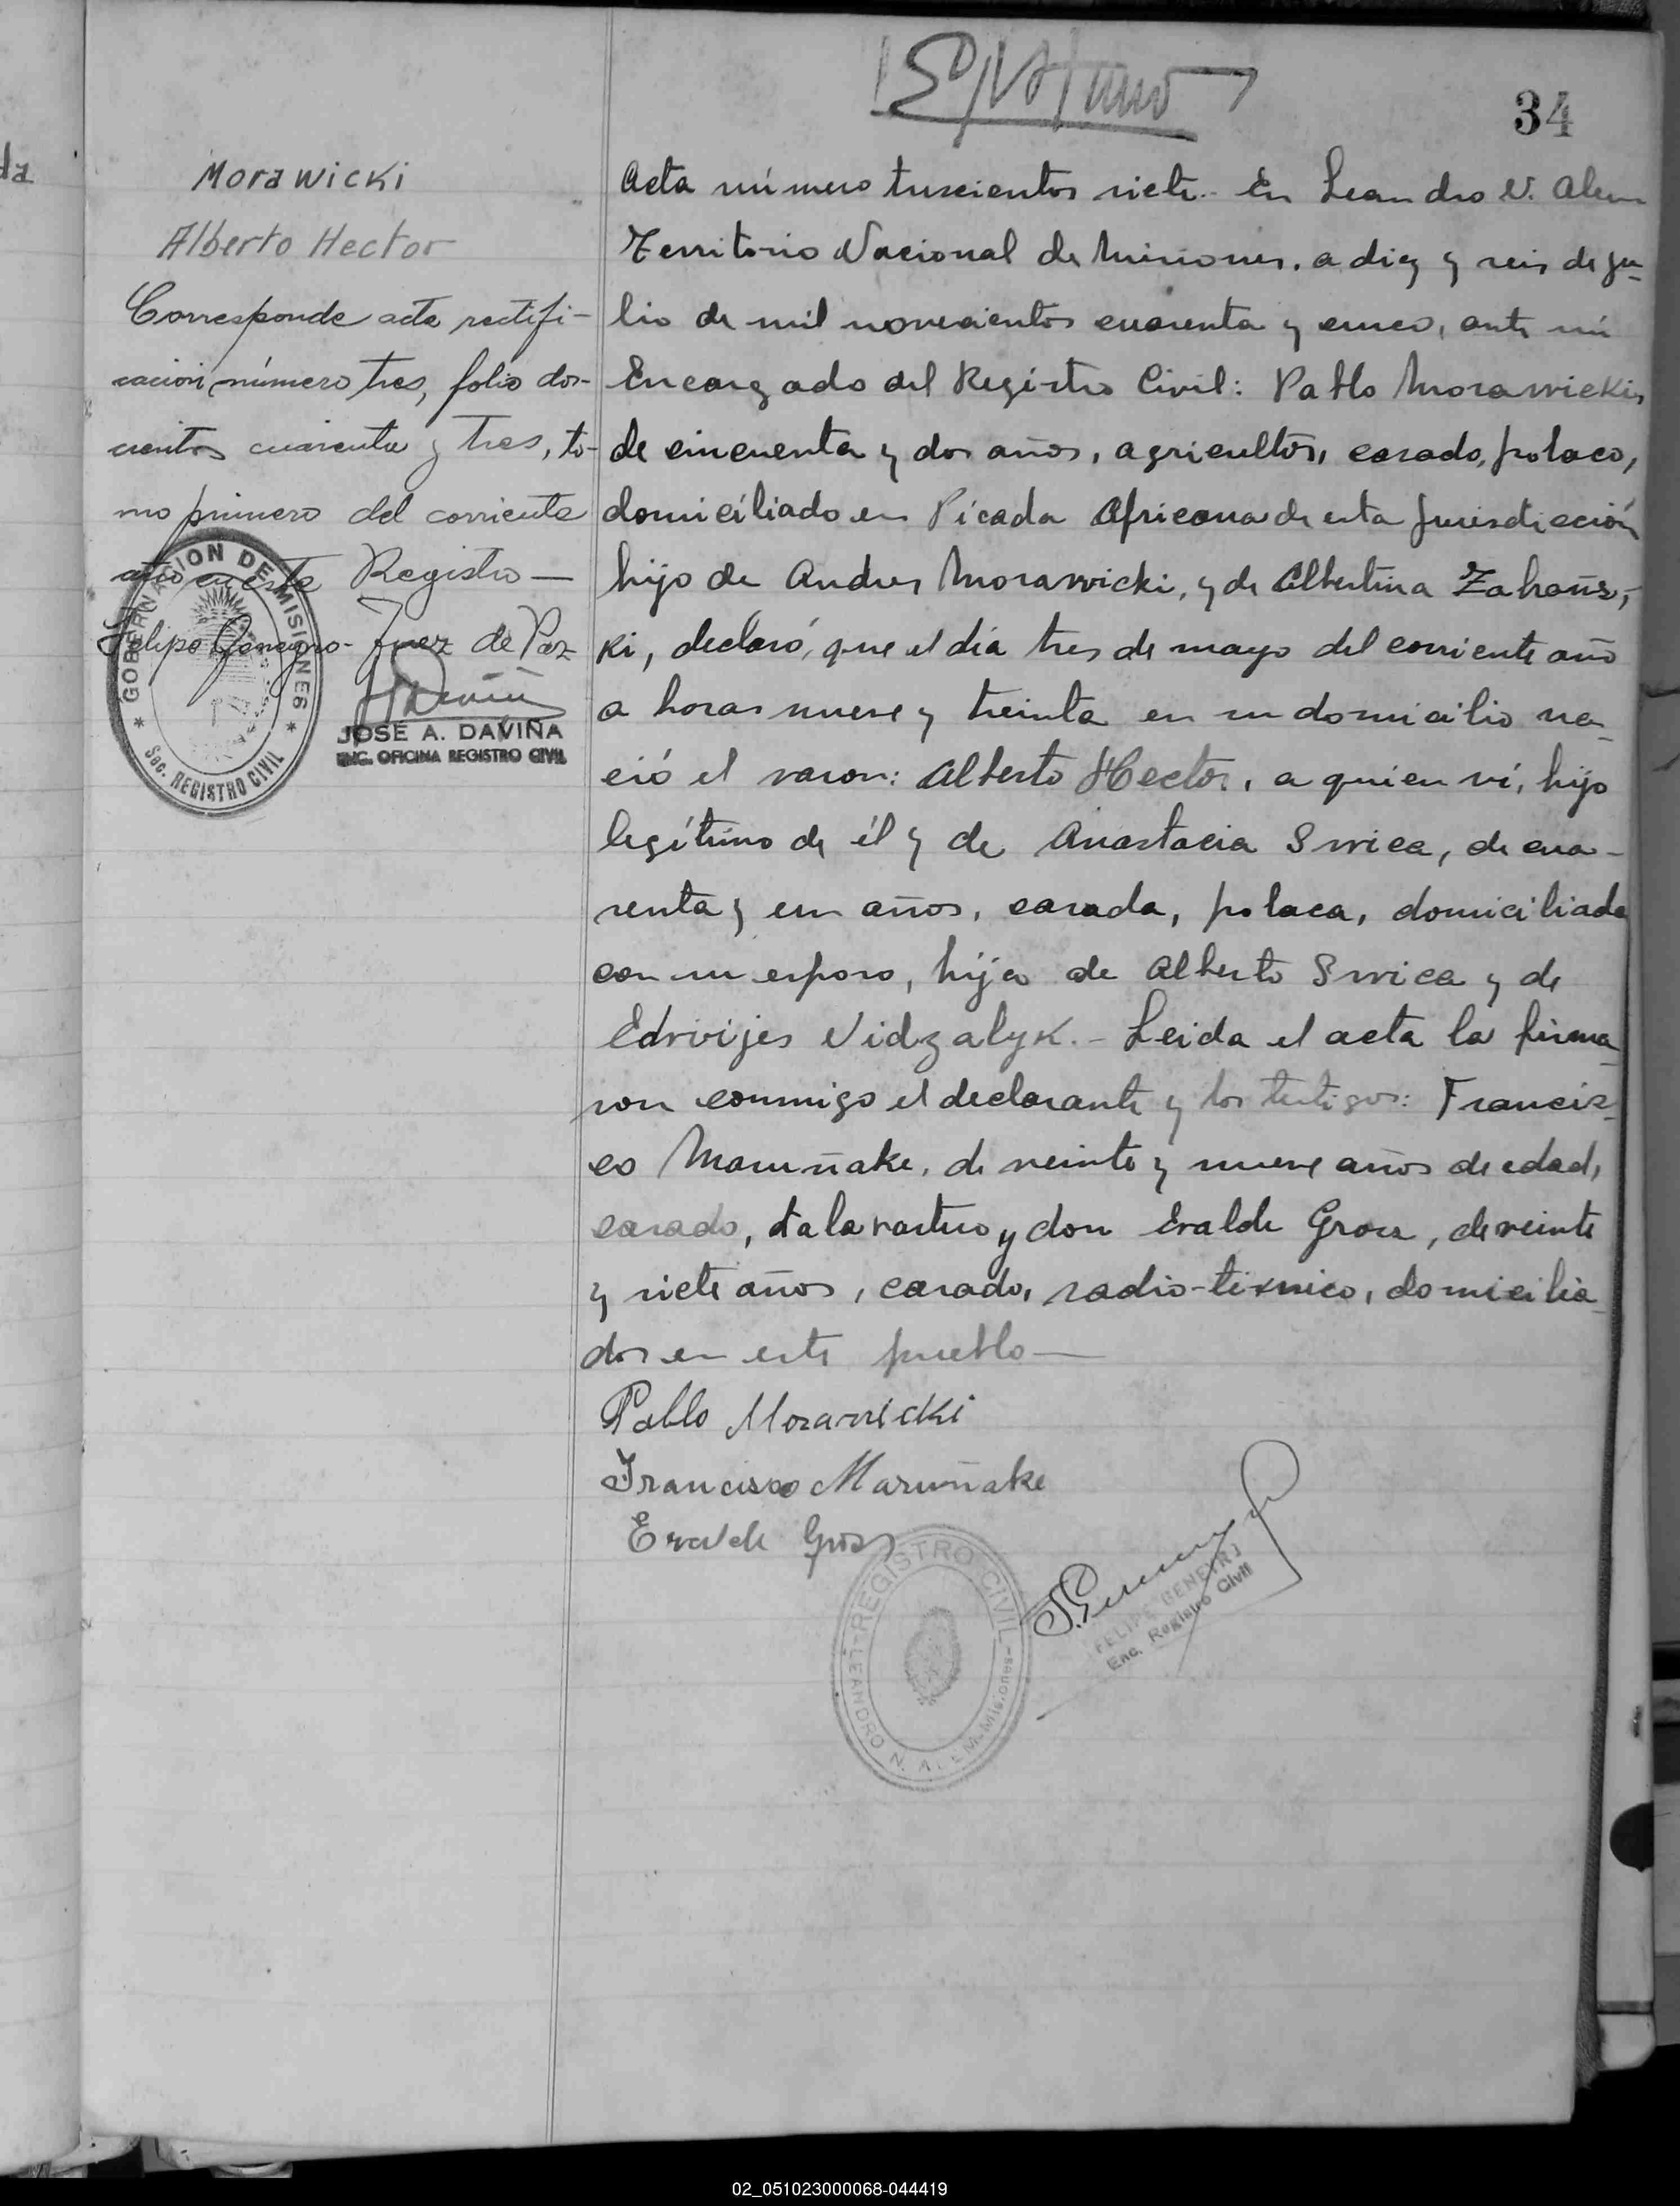 34
Morawicki
Alberto Hector
Corresponde acta rectifi-
cacion número tres, folio dos-
cientos cuarenta y tres, to-
mo primero del corriente
año en este Registro —
Felipe - Juez de Paz
GOBERNACION DE MISIONES
Sec. REGISTRO CIVIL
JOSE A. DAVIÑA
ENC. OFICINA REGISTRO CIVIL
Acta número trescientos siete.- En Leandro N. Alem
Territorio Nacional de Misiones, a diez y seis de ju-
lio de mil novecientos cuarenta y cinco, ante mi
Encargado del Registro Civil: Pablo Morawicki,
de cincuenta y dos años, agricultor, casado, polaco,
domiciliado en Picada Africana de esta Jurisdicción
hijo de Andres Morawicki, y de Albertina
ki, declaró, que el día tres de mayo del corriente año
a horas nueve y treinta en su domicilio na-
ció el varon: Alberto Hector, a quien ví, hijo
legítimo de él y de Anastacia Swica, de cua-
renta y un años, casada, polaca, domiciliada
con su esposo, hija de Alberto Swica y de
Edvvijes Vidzalyk.- Leida el acta la firma-
ron conmigo el declarante y los testigos: Francis-
co Maruñake, de veinte y nueve años de edad,
casado, talavartero y don Evalde Gross, de veinte
y siete años, casado, radio-tecnico, domicilia-
dos en este pueblo —
Pablo Morawicki
Francisco Maruñake
Evalde Gross
REGISTRO CIVIL
LEANDRO N. ALEM-Misiones-
FELIPE GENEYRO
Enc. Registro Civil
02_051023000068-044419